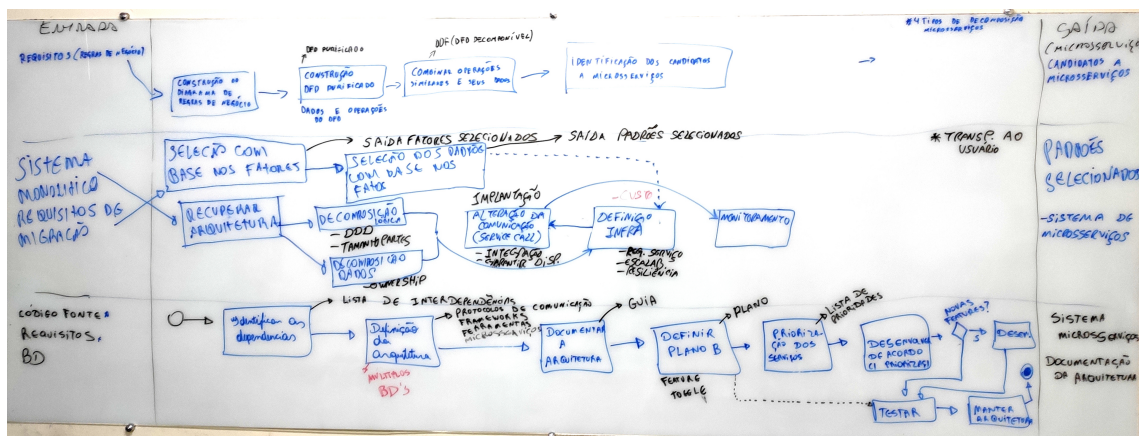 ENTRADA
REQUISITOS (REGRAS DE NEGÓCIO)
CONSTRUÇÃO DO
DIAGRAMA DE
REGRAS DE NEGÓCIO
DFD PURIFICADO
CONSTRUÇÃO
DFD PURIFICADO
DADOS E OPERAÇÕES
DO DFD
DDF (DFD DECOMPONÍVEL)
COMBINAR OPERAÇÕES
SIMILARES E SEUS DADOS
IDENTIFICAÇÃO DOS CANDIDATOS
A MICROSSERVIÇOS
#4 TIPOS DE DECOMPOSIÇÃO
MICROSSERVIÇOS
SAÍDA
(MICROSSERVIÇO
CANDIDATOS A
MICROSSERVIÇOS
SISTEMA
MONOLITICO
REQUISITOS DE
MIGRAÇÃO
SELEÇÃO COM
BASE NOS FATORES
SAÍDA FATORES SELECIONADOS
SAÍDA PADRÕES SELECIONADOS
SELEÇÃO DOS PADRÕES
COM BASE NOS
FATOS
RECUPERAR
ARQUITETURA
DECOMPOSIÇÃO
LÓGICA
- DDD
- TAMANHO PARTES
DECOMPOSIÇÃO
DADOS
- OWNERSHIP
IMPLANTAÇÃO
ALTERAÇÃO DA
COMUNICAÇÃO
(SERVICE CALL)
- INTEGRAÇÃO
- GARANTIR DISP.
DEFINIÇÃO
INFRA
- REG. SERVIÇO
- ESCALAB.
- RESILIÊNCIA
MONITORAMENTO
* TRANSP. AO
USUÁRIO
PADRÕES
SELECIONADOS
- SISTEMA DE
MICROSSERVIÇOS
CÓDIGO FONTE*
REQUISITOS,
BD
Identificar as
dependências
LISTA DE INTERDEPENDÊNCIAS
Definição
da
arquitetura
MÚLTIPLOS
BD'S
PROTOCOLOS DE COMUNICAÇÃO
FRAMEWORKS
FERRAMENTAS
MICROSSERVIÇOS
DOCUMENTAR
A
ARQUITETURA
GUIA
DEFINIR
PLANO B
FEATURE
TOGGLE
PLANO
PRIORIZA-
ÇÃO DOS
SERVIÇOS
LISTA DE
PRIORIDADES
DESENVOLVER
DE ACORDO
NOVAS
FEATURES?
S
DESEN.
TESTAR
MANTER
ARQUITETURA
SISTEMA
MICROSSERVIÇOS
DOCUMENTAÇÃO
DA ARQUITETURA